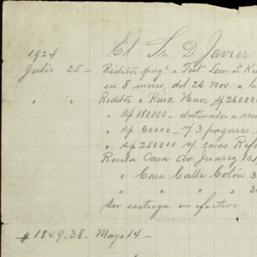 1924 El Sr D. Javier
Julio 25 - Réditos pag. a Test. Leon S.
en 8 meses, del 26 Nov. a la
" " Réditos a Ruiz Hnos $p 26000
" $p 180000 - destinados a
" $p 60000 - n/3 pagarés -
" $p 250000 n/ casas Ref
Renta Casa Av. Juarez
" Casa Calle Colón 3
" " " 3
Su entrega en efectivo
$ 1849.38 - Mayo 14 -